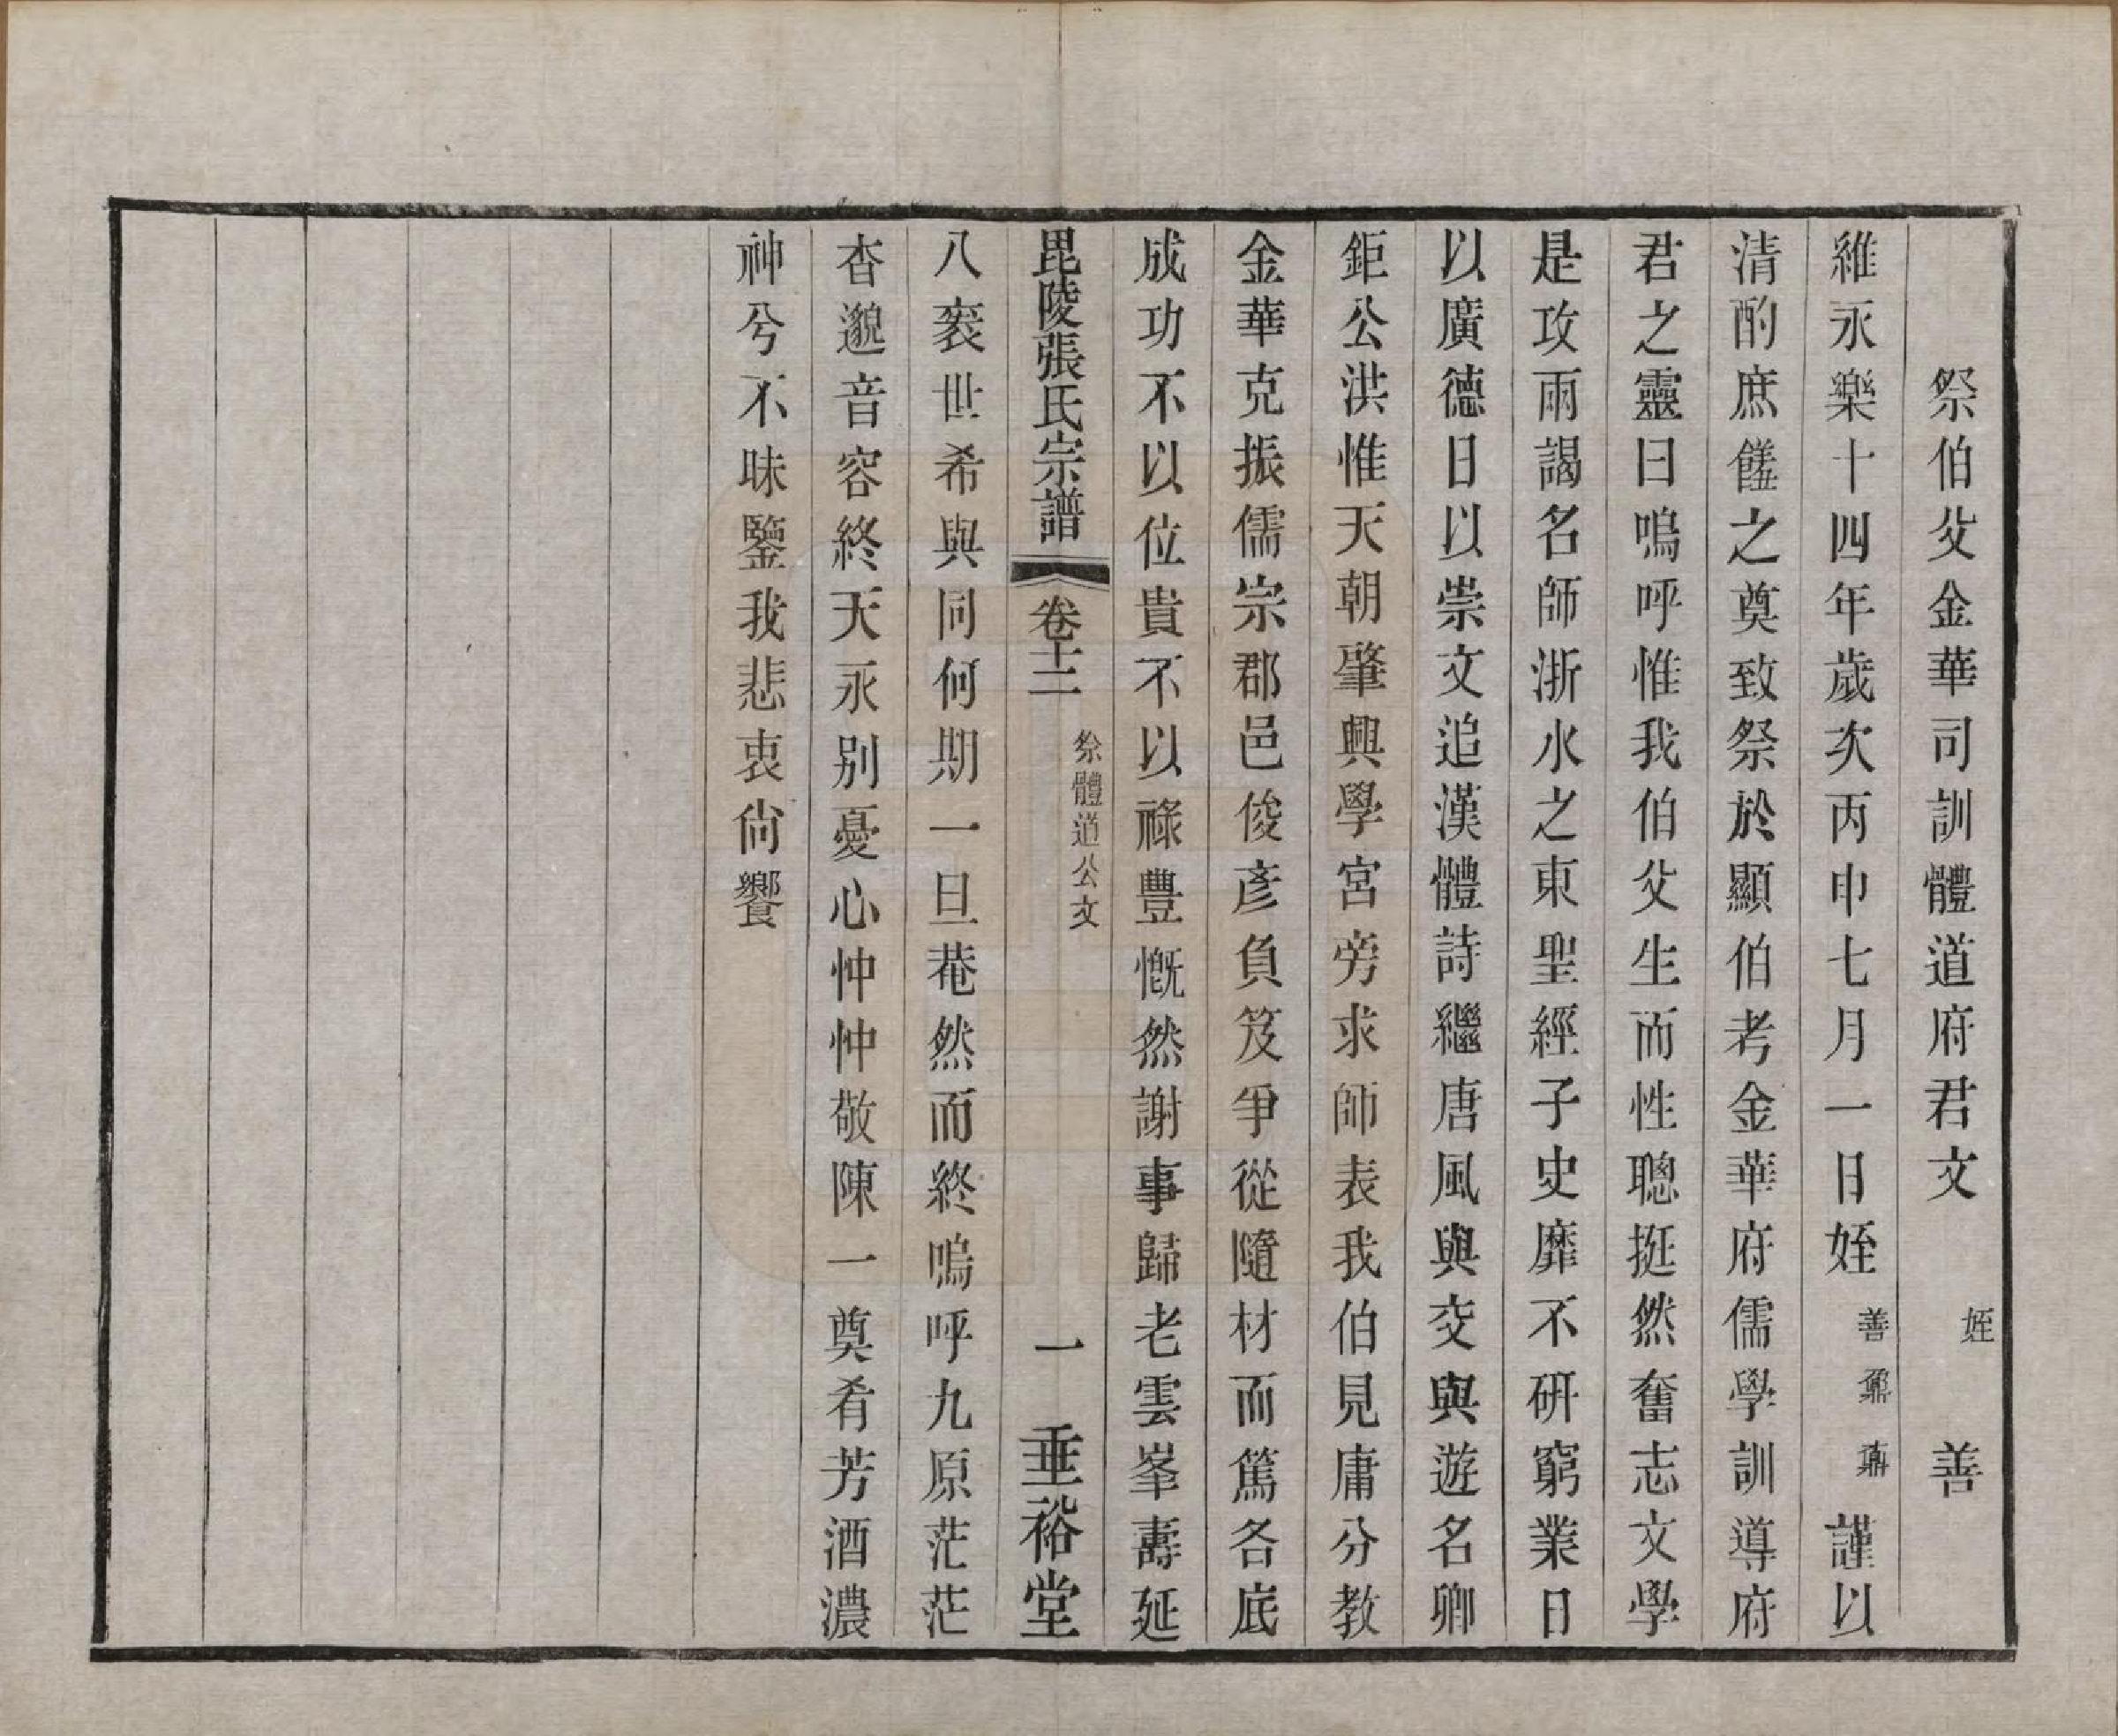 祭伯父金華司訓體道府君文 姪 善
維永樂十四年歲次丙申七月一日姪善鼐鼒謹以
清酌庶饈之奠致祭於顯伯考金華府儒學訓導府
君之靈曰嗚呼惟我伯父生而性聰挺然奮志文學
是攻兩謁名師浙水之東聖經子史靡不研窮業日
以廣德日以崇文追漢體詩繼唐風與交與遊名卿
鉅公洪惟天朝肇興學宮旁求師表我伯見庸分教
金華克振儒宗郡邑俊彥負笈爭從隨材而篤各底
成功不以位貴不以祿豐慨然謝事歸老雲峯壽延
毘陵張氏宗譜 卷十二 祭體道公文 一 垂裕堂
八袠世希與同何期一旦菴然而終嗚呼九原茫茫
杳邈音容終天永別憂心忡忡敬陳一奠肴芳酒濃
神兮不昧鑒我悲衷尙饗